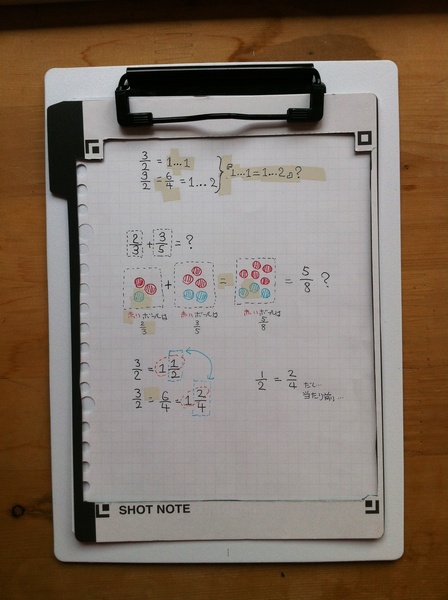 3/2 = 1...1
3/2 = 6/4 = 1...2 } 1...1 = 1...2 ?
2/3 + 3/5 = ?
+ = = 5/8 ?
赤いボールは 2/3 赤いボールは 3/5 赤いボールは 5/8
3/2 = 1 1/2
3/2 = 6/4 = 1 2/4
1/2 = 2/4 だし
当たり前...
SHOT NOTE